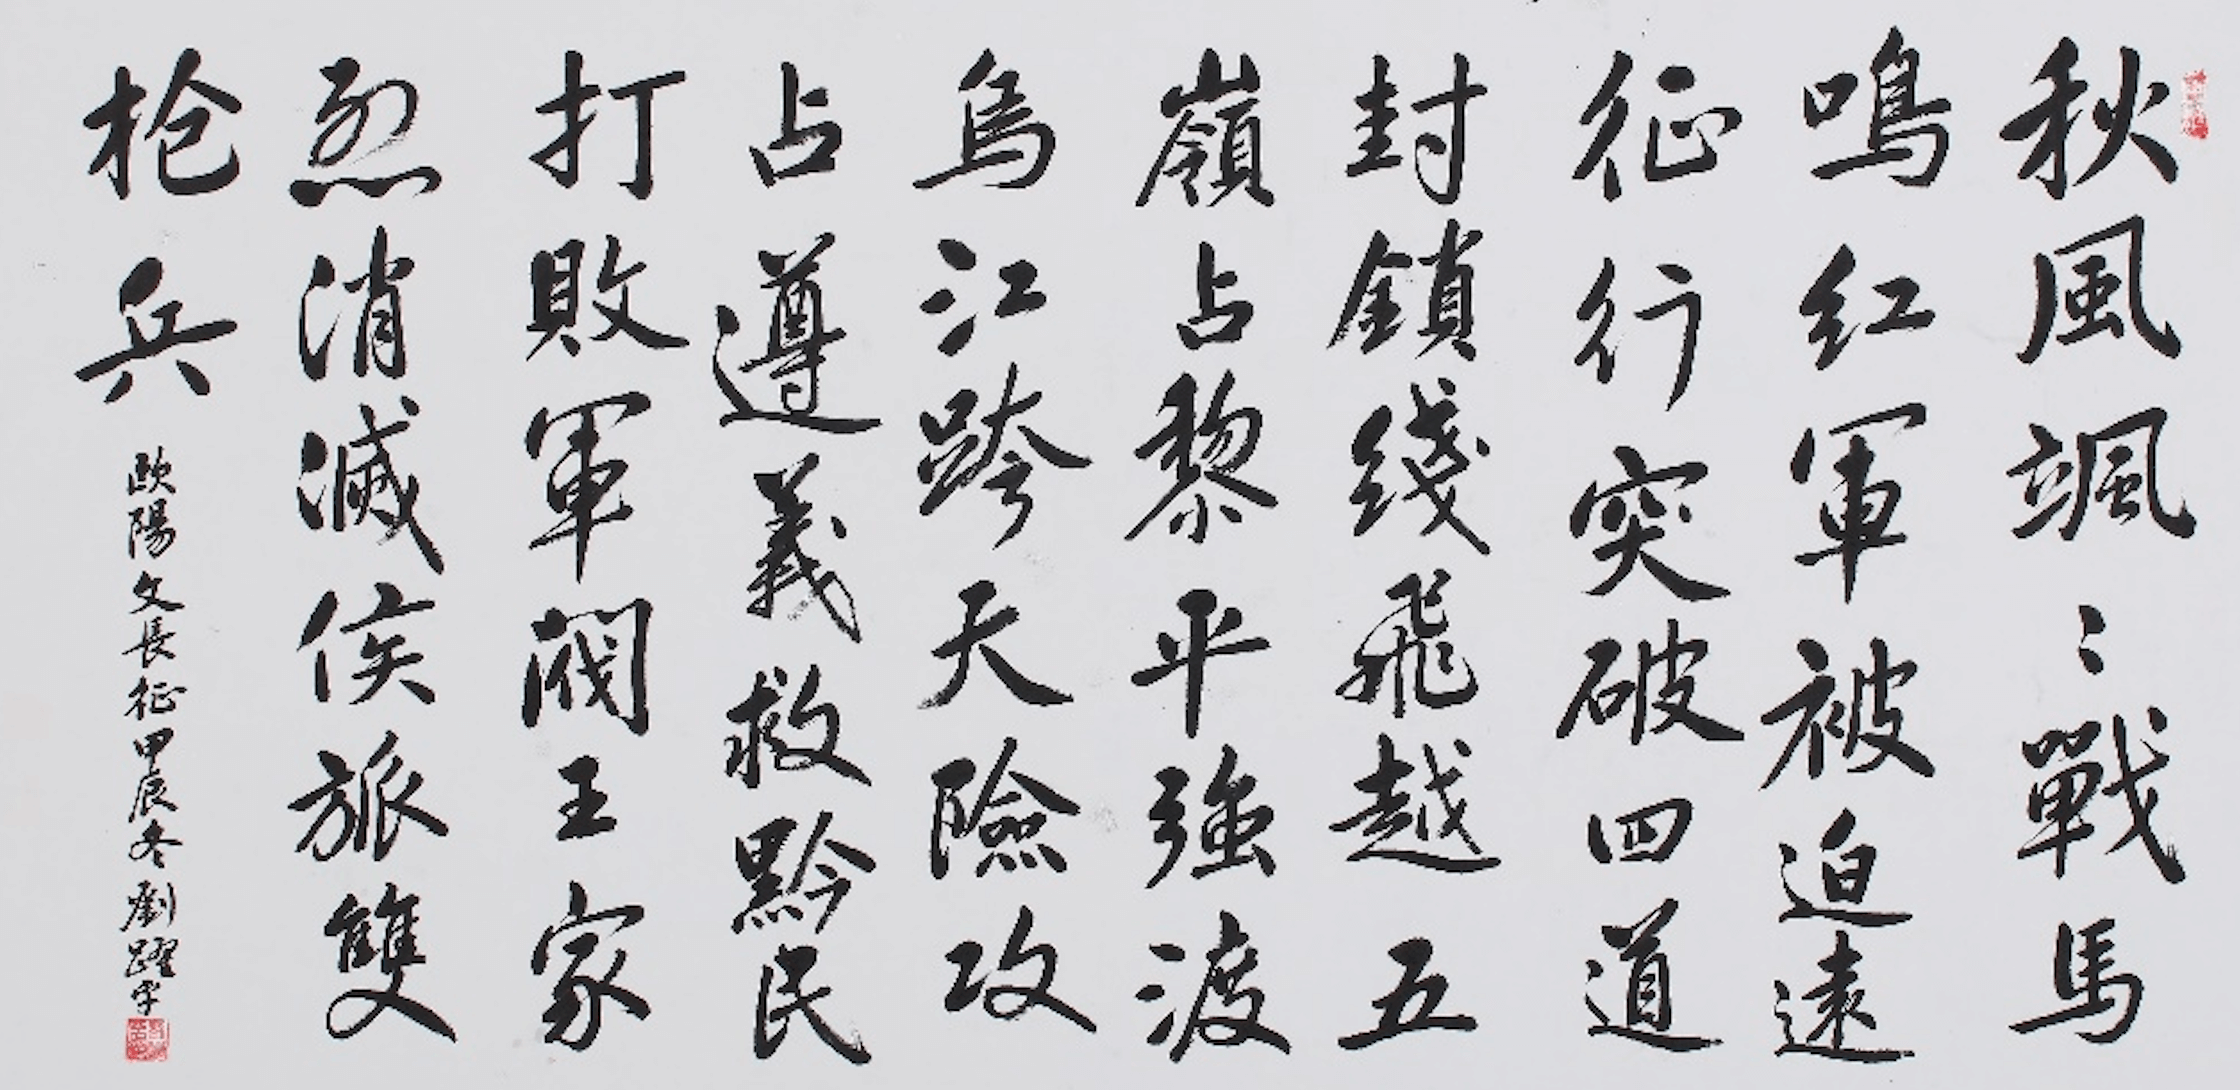 秋風颯〻戰馬
鳴红軍被迫遠
征行突破四道
封鎖綫飛越五
嶺占黎平強渡
烏江跨天險攻
占遵義救黔民
打敗軍閥王家
烈消滅侯旅雙
枪兵
歐陽文長征甲辰冬劉躍平